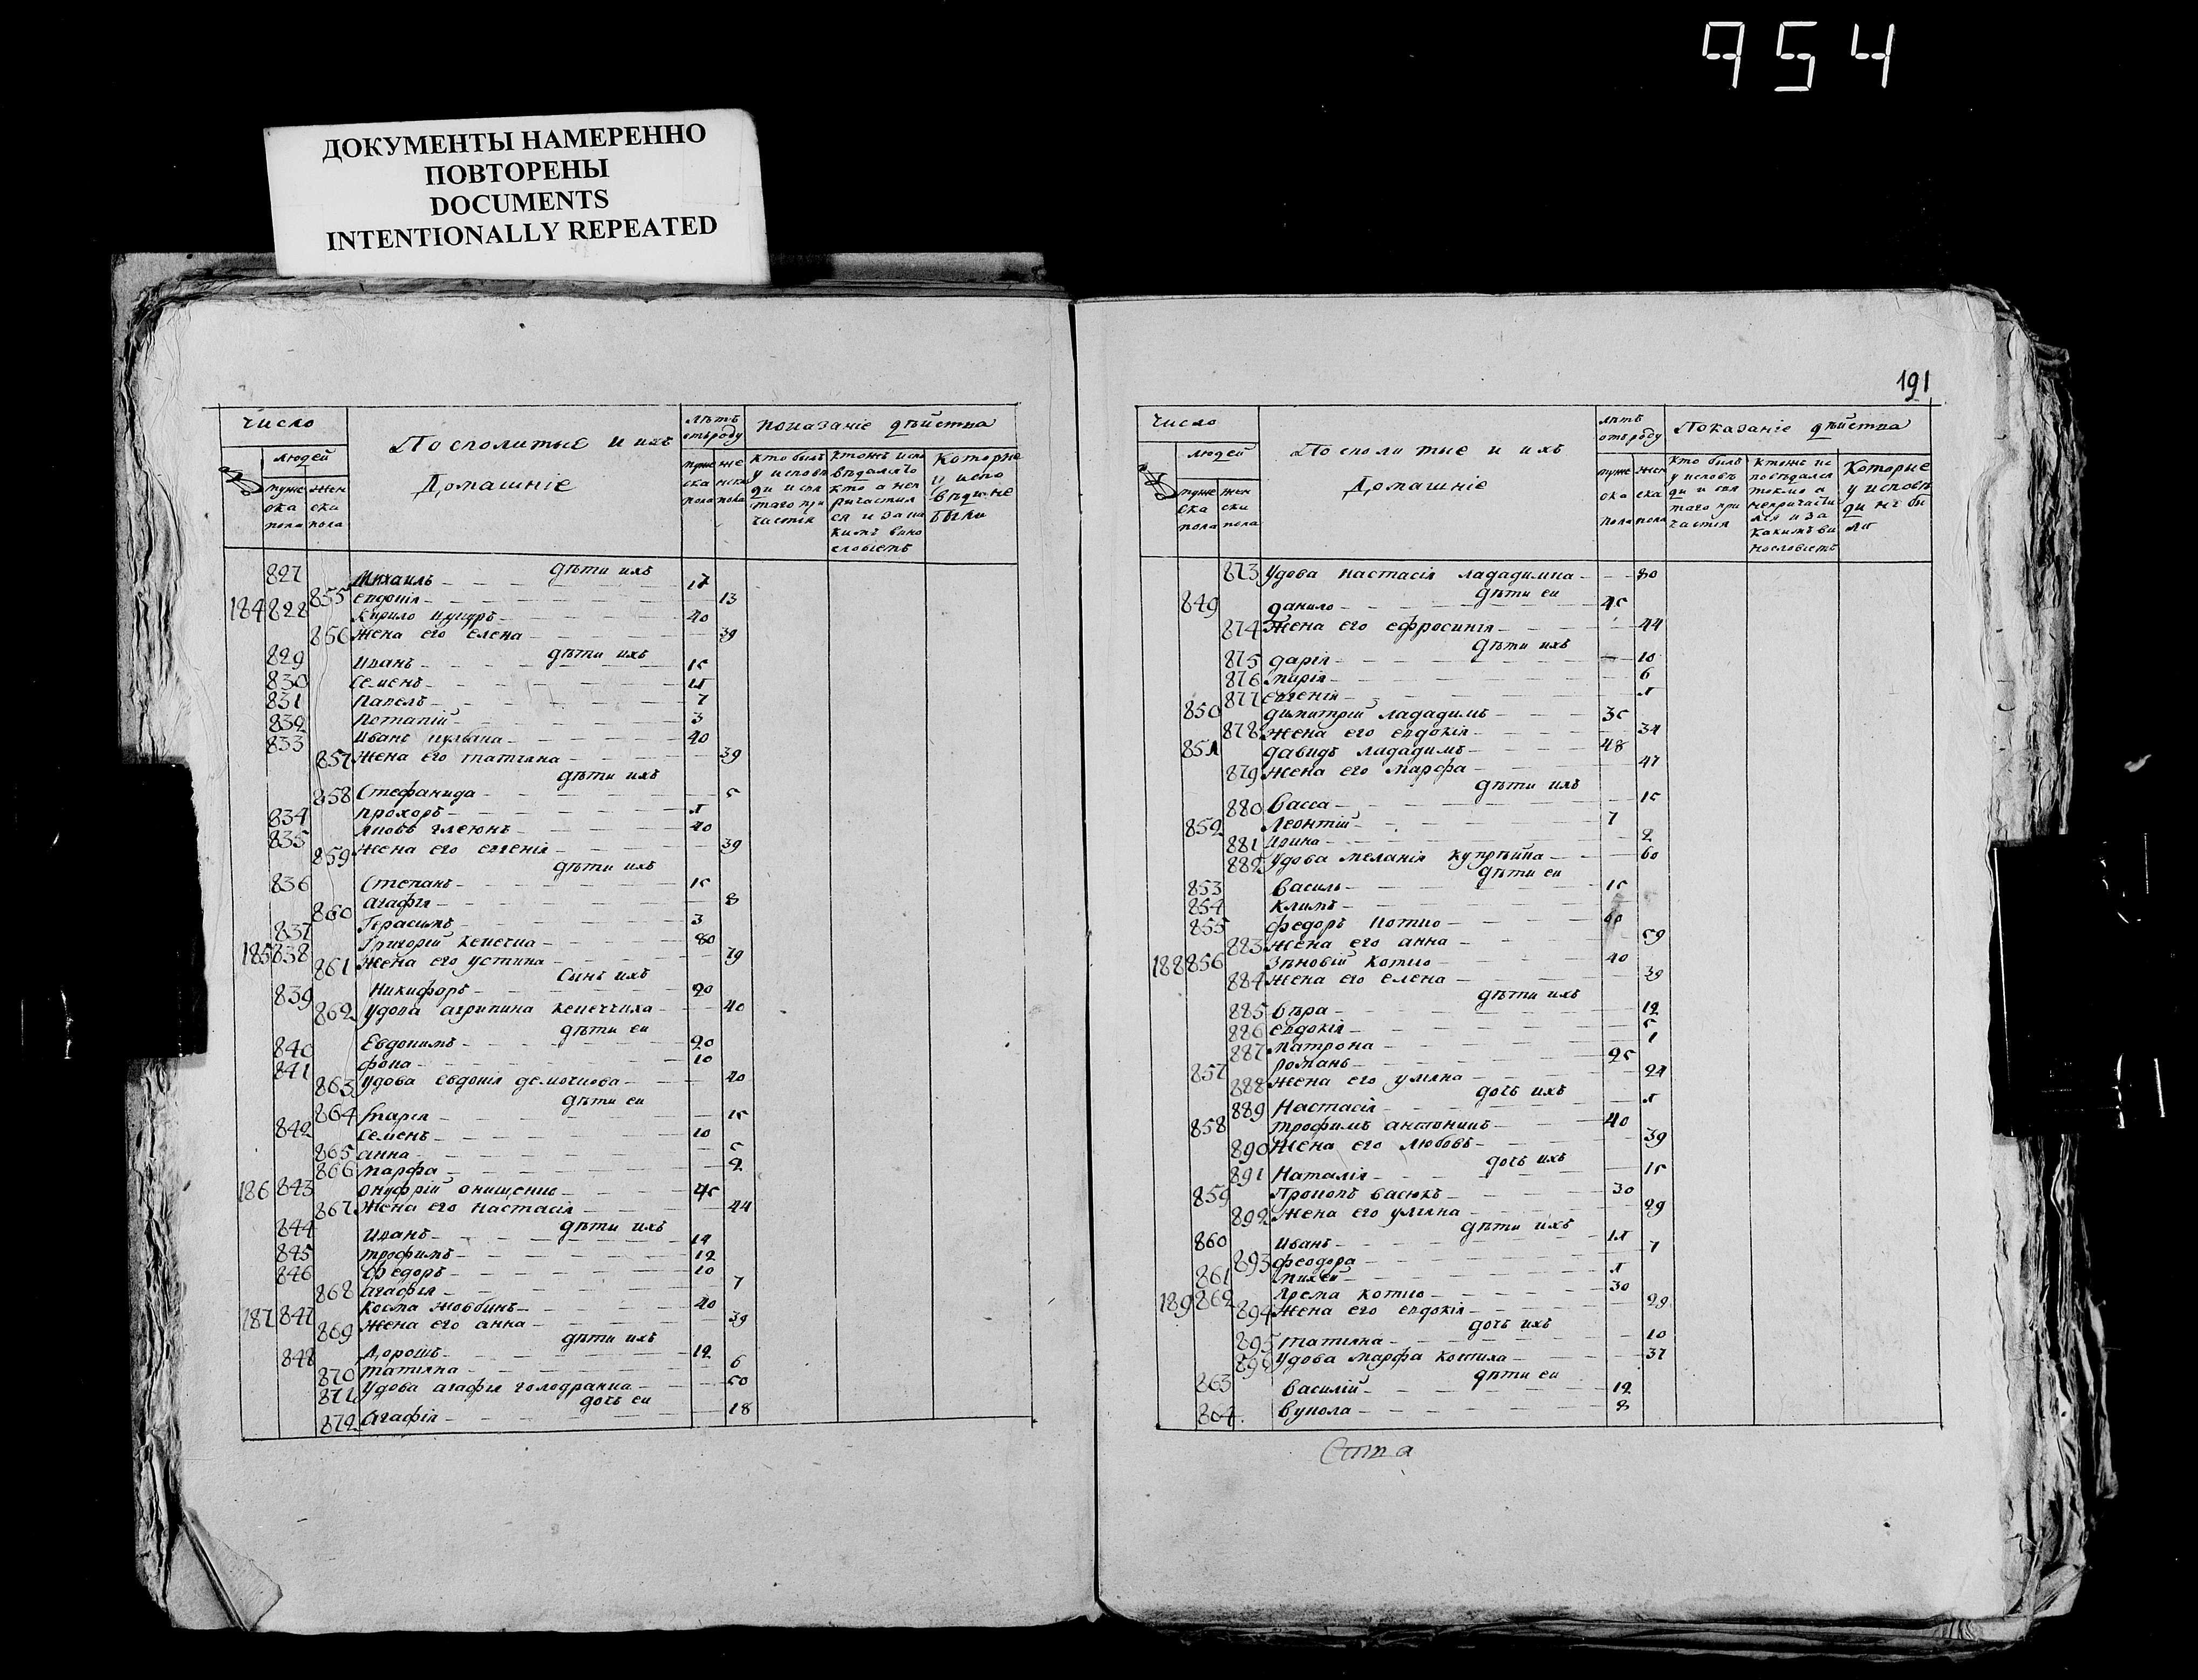 954
ДОКУМЕНТЫ НАМЕРЕННО
ПОВТОРЕНЫ
DOCUMENTS
INTENTIONALLY REPEATED
Число
людей
муже ска пола
жен ски пола
Посполитые и ихъ
Домашніе
лѣтъ отъ роду
муже ска пола
же нска пола
показаніе дѣйства
Которые у испо вѣди не были
дѣти ихъ
827 Михаилъ 17
855 евдокія 13
184 828 Кирило 40
856 Жена его елена 39
дѣти ихъ
829 Иванъ 15
830 Семенъ
831 Павелъ 7
832 Потапій 3
833 Иванъ 40
857 Жена его татіяна 39
дѣти ихъ
858 Стефанида 5
834 Прохоръ
835 Яковъ 40
859 Жена его евгенія 39
дѣти ихъ
836 Степанъ 15
860 агафія 8
837 Герасимъ 3
185 838 Григорій 80
861 Жена его устина 79
сынъ ихъ
839 Никифоръ 20
862 удова агрипина 40
дѣти еи
840 Евдокимъ 20
841 фока 10
863 удова евдокія 40
дѣти еи
864 марія 15
842 Семенъ 10
865 анна 5
866 марфа 2
186 843 онуфрій онищенко 45
867 Жена его настасія 44
дѣти ихъ
844 Иванъ 14
845 трофимъ 12
846 федоръ 10
868 агафія 7
187 847 Косма 40
869 Жена его анна 39
дѣти ихъ
848 Дорошъ 12
870 татіяна 6
871 удова агафія голодранка 50
дочь еи
872 агафія 18
191
Число
людей
муже ска пола
жен ски пола
Посполитые и ихъ
Домашніе
лѣтъ отъ роду
муже ска пола
жен ска пола
Показаніе дѣйства
Кто былъ у исповѣ ди и свя таго при частія
Которые у исповѣ ди не бы ли
873 удова настасія 80
дѣти еи
849 данило 45
874 Жена его ефросинія 44
дѣти ихъ
875 дарія 10
876 марія 6
877 евгенія
850 димитрій 35
878 Жена его евдокія 34
851 давидъ 48
879 Жена его марфа 47
дѣти ихъ
880 васса 15
852 Леонтій 7
881 Ирина 2
882 удова меланія 60
дѣти еи
853 василь 15
854 Климъ
855 федоръ Котко 60
883 Жена его анна 59
188 856 Зѣновій Котко 40
884 Жена его елена 39
дѣти ихъ
885 вѣра 12
886 евдокія 5
887 матрона 1
857 романъ 25
888 Жена его уляна 24
дочь ихъ
889 Настасія
858 трофимъ 40
890 Жена его любовь 39
дочь ихъ
891 Наталія 15
859 Прокопъ васюкъ 30
892 Жена его уляна 29
дѣти ихъ
860 Иванъ
893 феодора 7
861 михей
189 862 ярема Котко 30
894 Жена его евдокія 29
дочь ихъ
895 татіяна 10
896 удова марфа 37
дѣти еи
863 василій 12
864 вукола 8